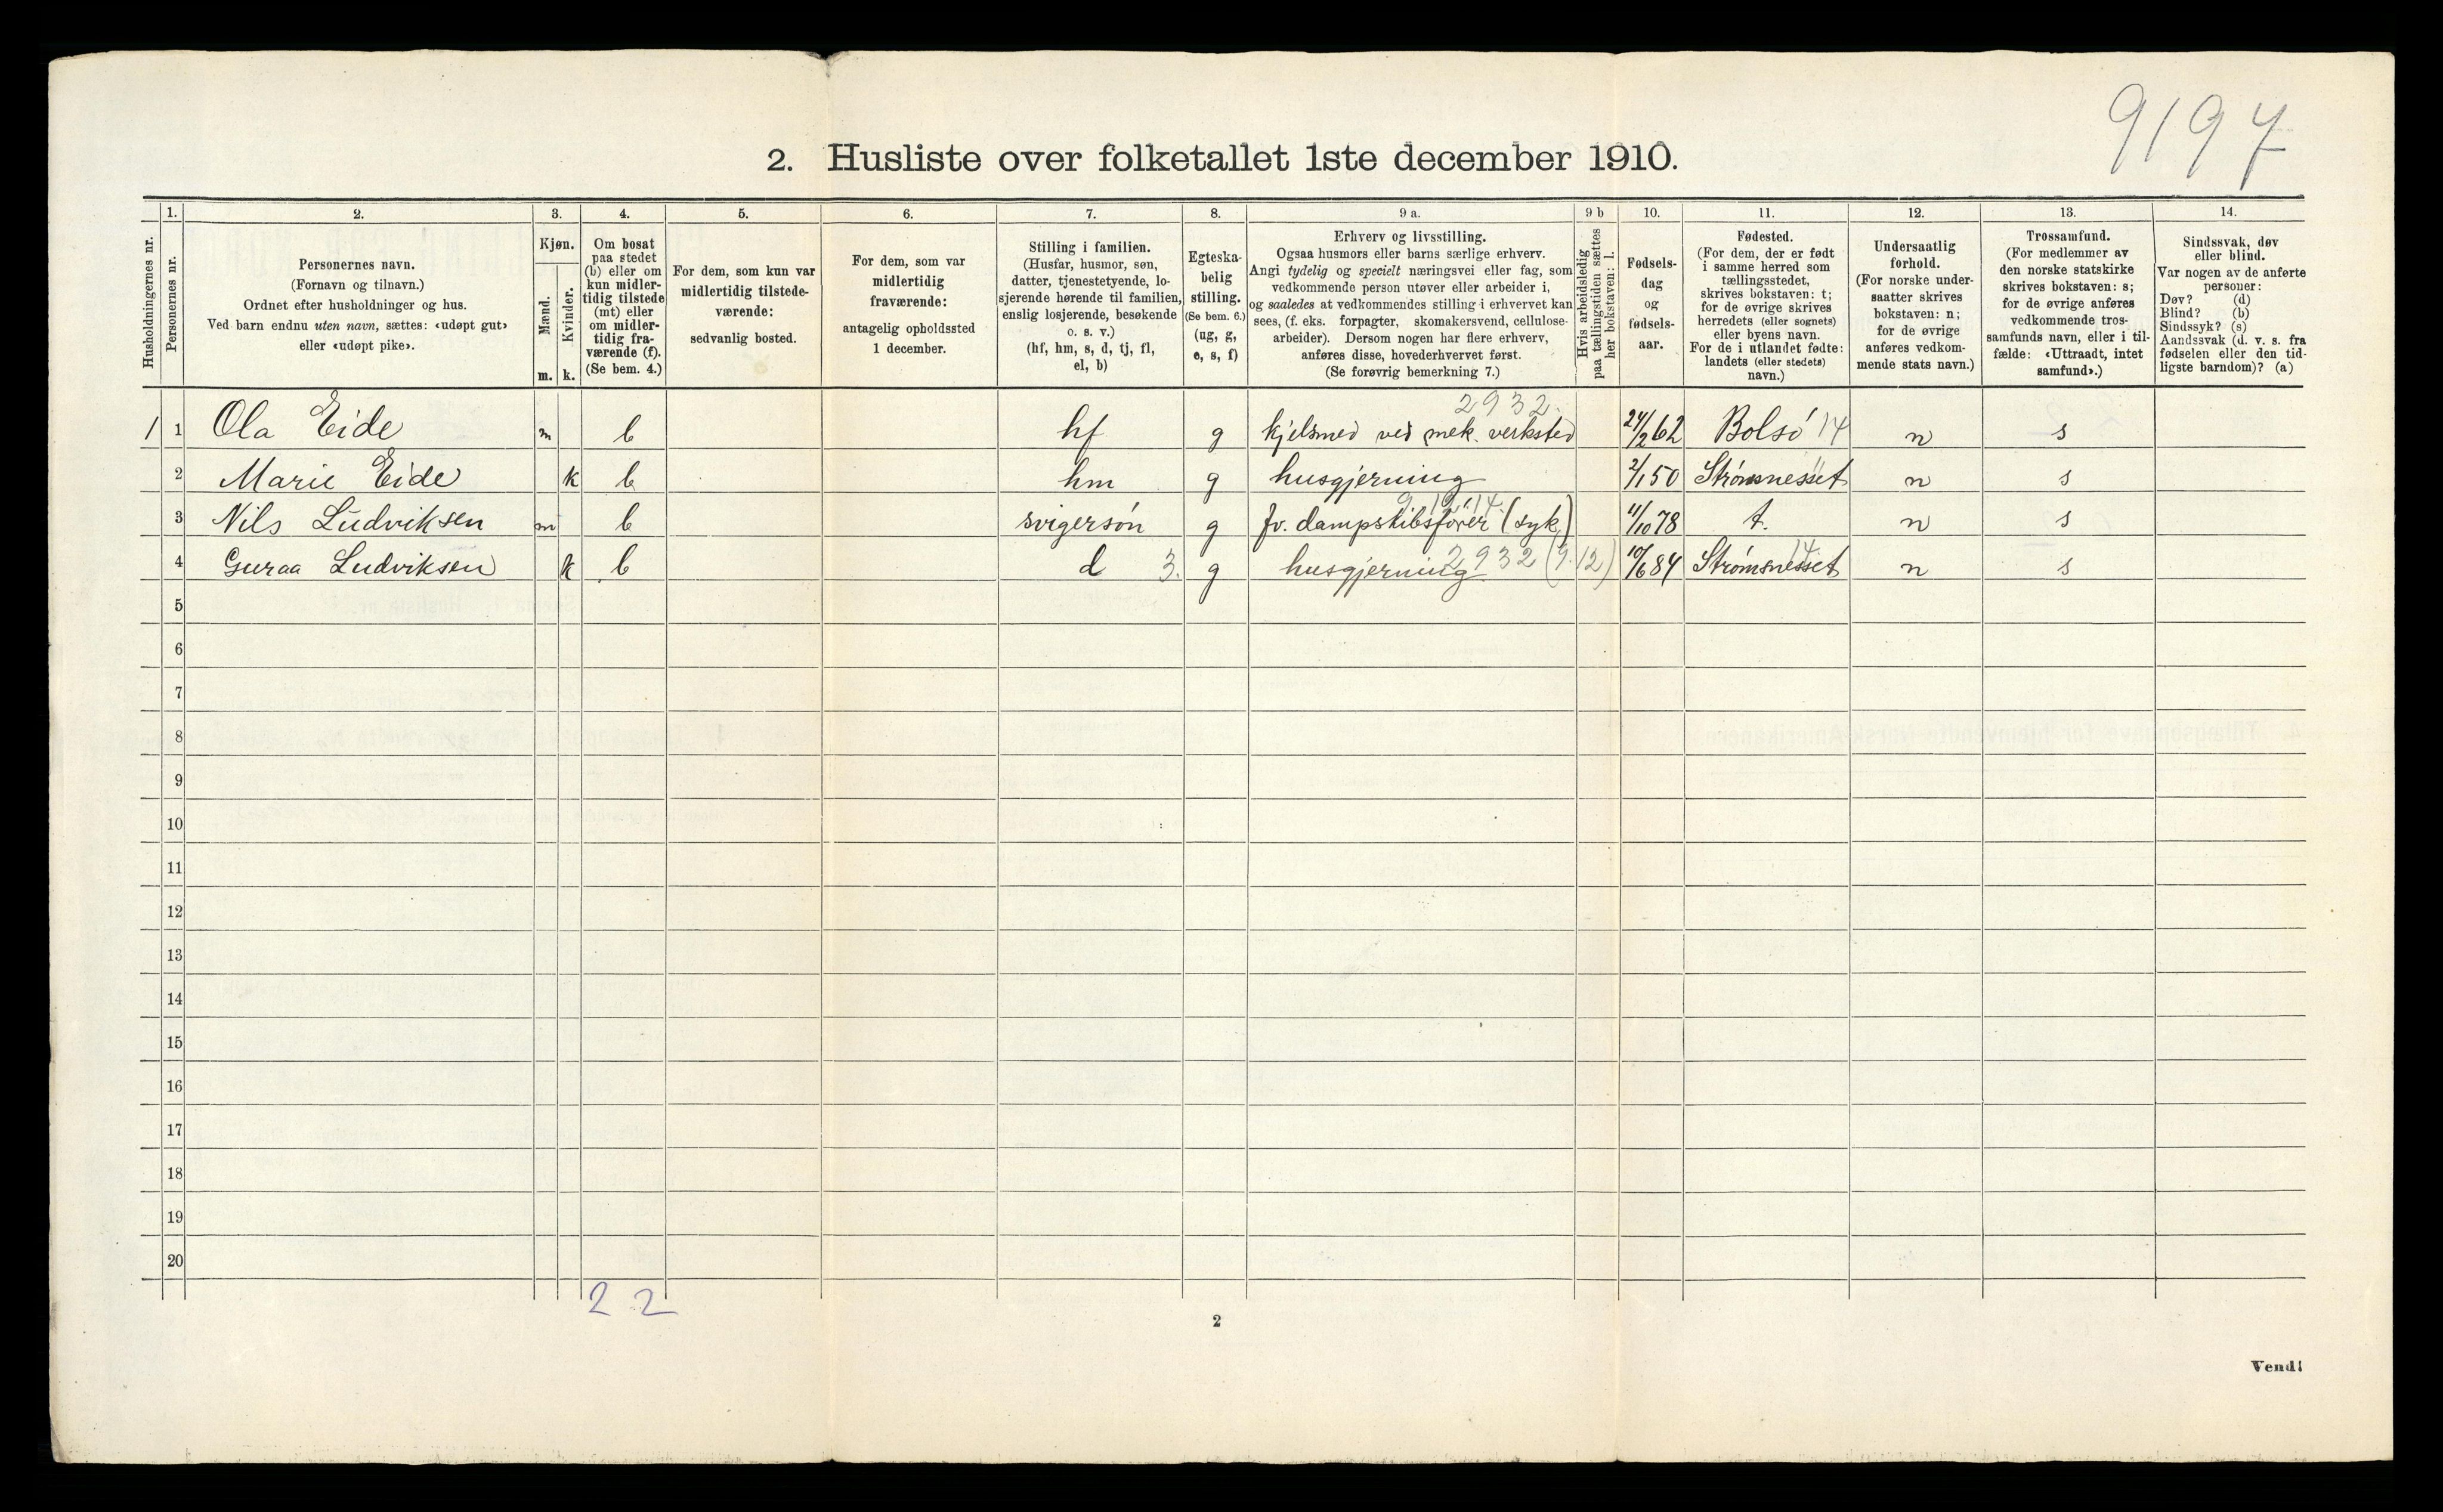 9197
2. Husliste over folketallet 1ste december 1910.
Husholdningernes nr.
1.
Personernes nr.
2.
Personernes navn.
(Fornavn og tilnavn.)
Ordnet efter husholdninger og hus.
Ved barn endnu uten navn, sættes: «udøpt gut»
eller «udøpt pike».
3.
Kjøn.
Mænd.
Kvinder.
m. k.
4.
Om bosat
paa stedet
(b) eller om
kun midler-
tidig tilstede
(mt) eller
om midler-
tidig fra-
værende (f).
(Se bem. 4.)
5.
For dem, som kun var
midlertidig tilstede-
værende:
sedvanlig bosted.
6.
For dem, som var
midlertidig
fraværende:
antagelig opholdssted
1 december.
7.
Stilling i familien.
(Husfar, husmor, søn,
datter, tjenestetyende, lo-
sjerende hørende til familien,
enslig losjerende, besøkende
o. s. v.)
(hf, hm, s, d, tj, fl,
el, b)
8.
Egteska-
belig
stilling.
(Se bem. 6.)
(ug, g,
e, s, f)
9 a.
Erhverv og livsstilling.
Ogsaa husmors eller barns særlige erhverv.
Angi tydelig og specielt næringsvei eller fag, som
vedkommende person utøver eller arbeider i,
og saaledes at vedkommendes stilling i erhvervet kan
sees, (f. eks. forpagter, skomakersvend, cellulose-
arbeider). Dersom nogen har flere erhverv,
anføres disse, hovederhvervet først.
(Se forøvrig bemerkning 7.)
9 b
Hvis arbeidsledig
paa tællingstiden sættes
her bokstaven: l.
10.
Fødsels-
dag
og
fødsels-
aar.
11.
Fødested.
(For dem, der er født
i samme herred som
tællingsstedet,
skrives bokstaven: t;
for de øvrige skrives
herredets (eller sognets)
eller byens navn.
For de i utlandet fødte:
landets (eller stedets)
navn.)
12.
Undersaatlig
forhold.
(For norske under-
saatter skrives
bokstaven: n;
for de øvrige
anføres vedkom-
mende stats navn.)
13.
Trossamfund.
(For medlemmer av
den norske statskirke
skrives bokstaven: s;
for de øvrige anføres
vedkommende tros-
samfunds navn, eller i til-
fælde: «Uttraadt, intet
samfund».)
14.
Sindssvak, døv
eller blind.
Var nogen av de anførte
personer:
Døv? (d)
Blind? (b)
Sindssyk? (s)
Aandssvak (d. v. s. fra
fødselen eller den tid-
ligste barndom)? (a)
2932.
1 1 Ola Eide m b hf g kjelsmed ved mek. verksted 24/2 62 Bolsø 14 n s
2 Marie Eide k b hm g husgjerning 2/1 50 Strømsnesset n s
3 Nils Ludviksen m b svigersøn g fv. dampskibsfører (syk) 11/10 78 t. n s
4 Guraa Ludviksen k b d 3. g husgjerning 2932 (9.12) 10/6 84 Strømsnesset 14 n s
5
6
7
8
9
10
11
12
13
14
15
16
17
18
19
20
2 2
2
Vend!